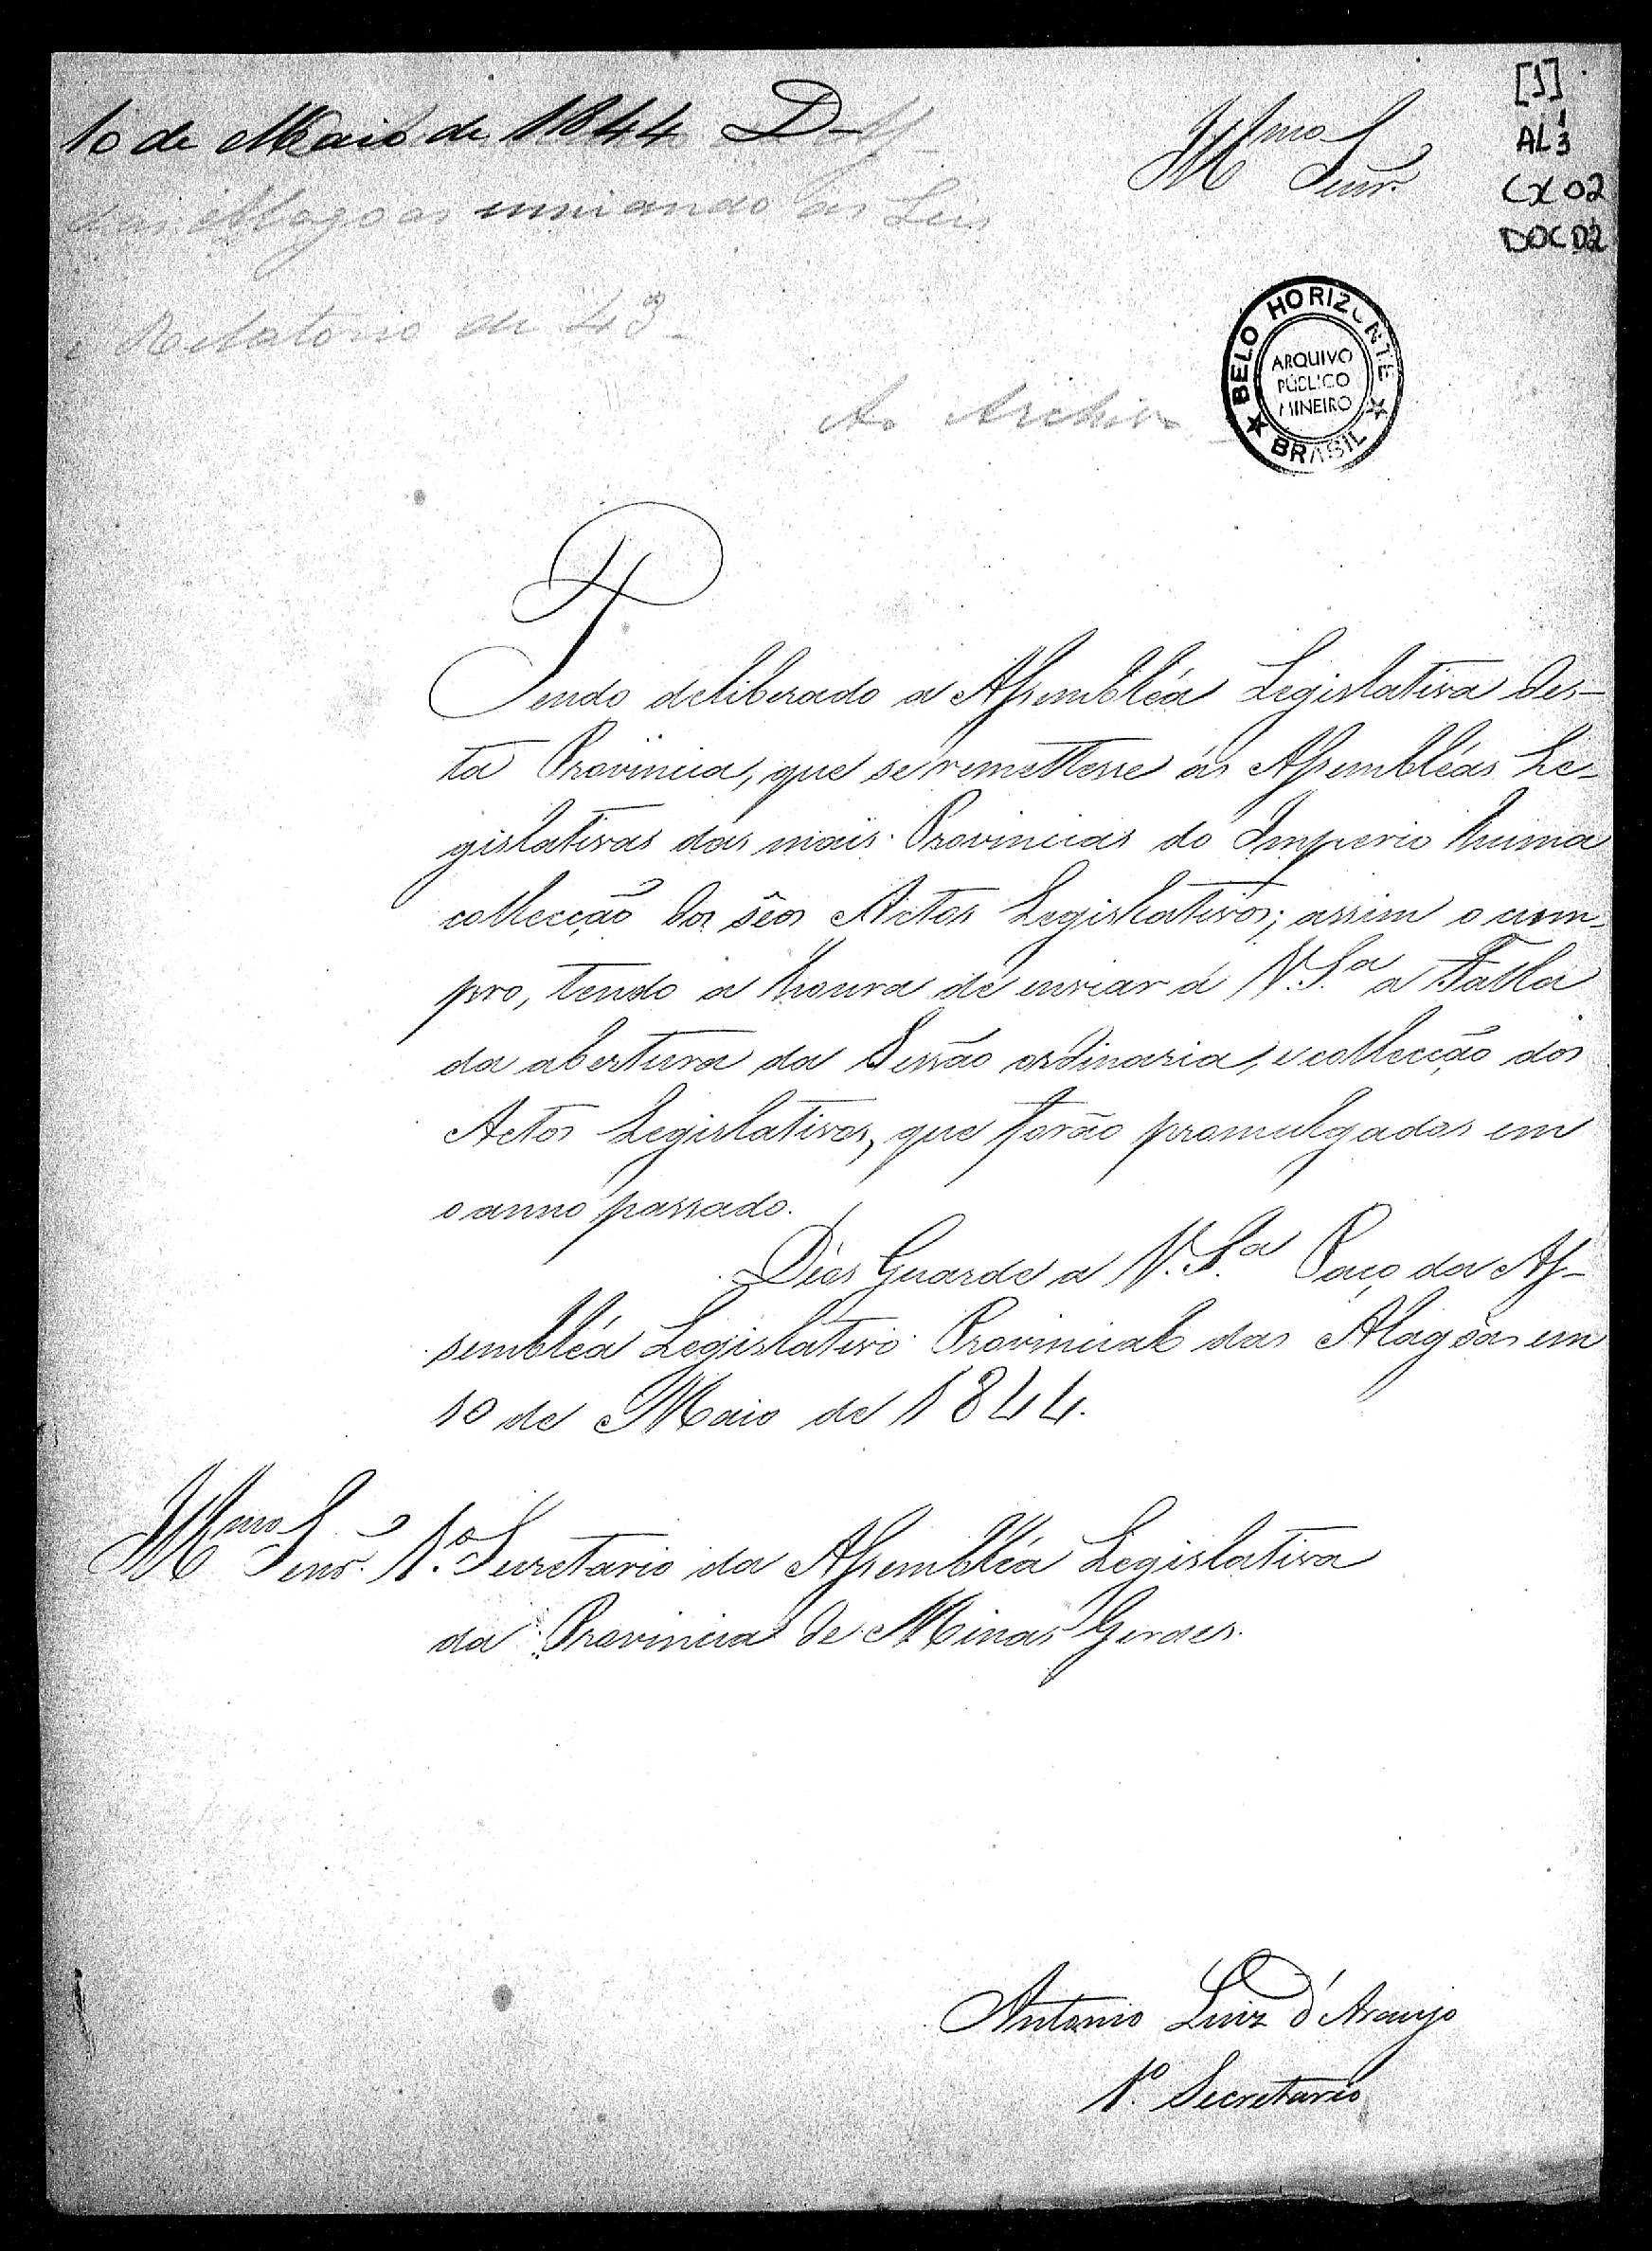 10 de Maio de 1844 D
das Alagoas enviando as Leis
e Relatorio de 43
Ao Archivo
Illmo Senr.
[1]
AL 3
CX 02
DOC 02
BELO HORIZONTE
ARQUIVO
PÚBLICO
MINEIRO
BRASIL
Tendo deliberado a Assembléa Legislativa des-
ta Provincia, que se remettesse ás Assembléas Le-
gislativas das mais Provincias do Imperio huma
collecção dos sêos Actos Legislativos; assim o cum-
pro, tendo a honra de enviar á V. S.a a Falla
da abertura da Sessão ordinaria, e collecção dos
Actos Legislativos, que forão promulgados em
o anno passado.
Deos Guarde a V. S.a Paço da As-
sembléa Legislativa Provincial das Alagôas em
10 de Maio de 1844.
Illmo Senr. 1.o Secretario da Assembléa Legislativa
da Provincia de Minas Geraes.
Antonio Luiz d'Araujo
1.o Secretario